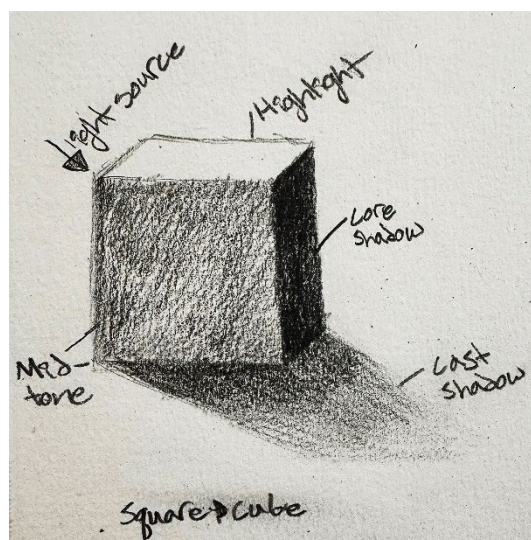 light source
Highlight
Core
shadow
Mid
tone
Cast
shadow
Square→Cube